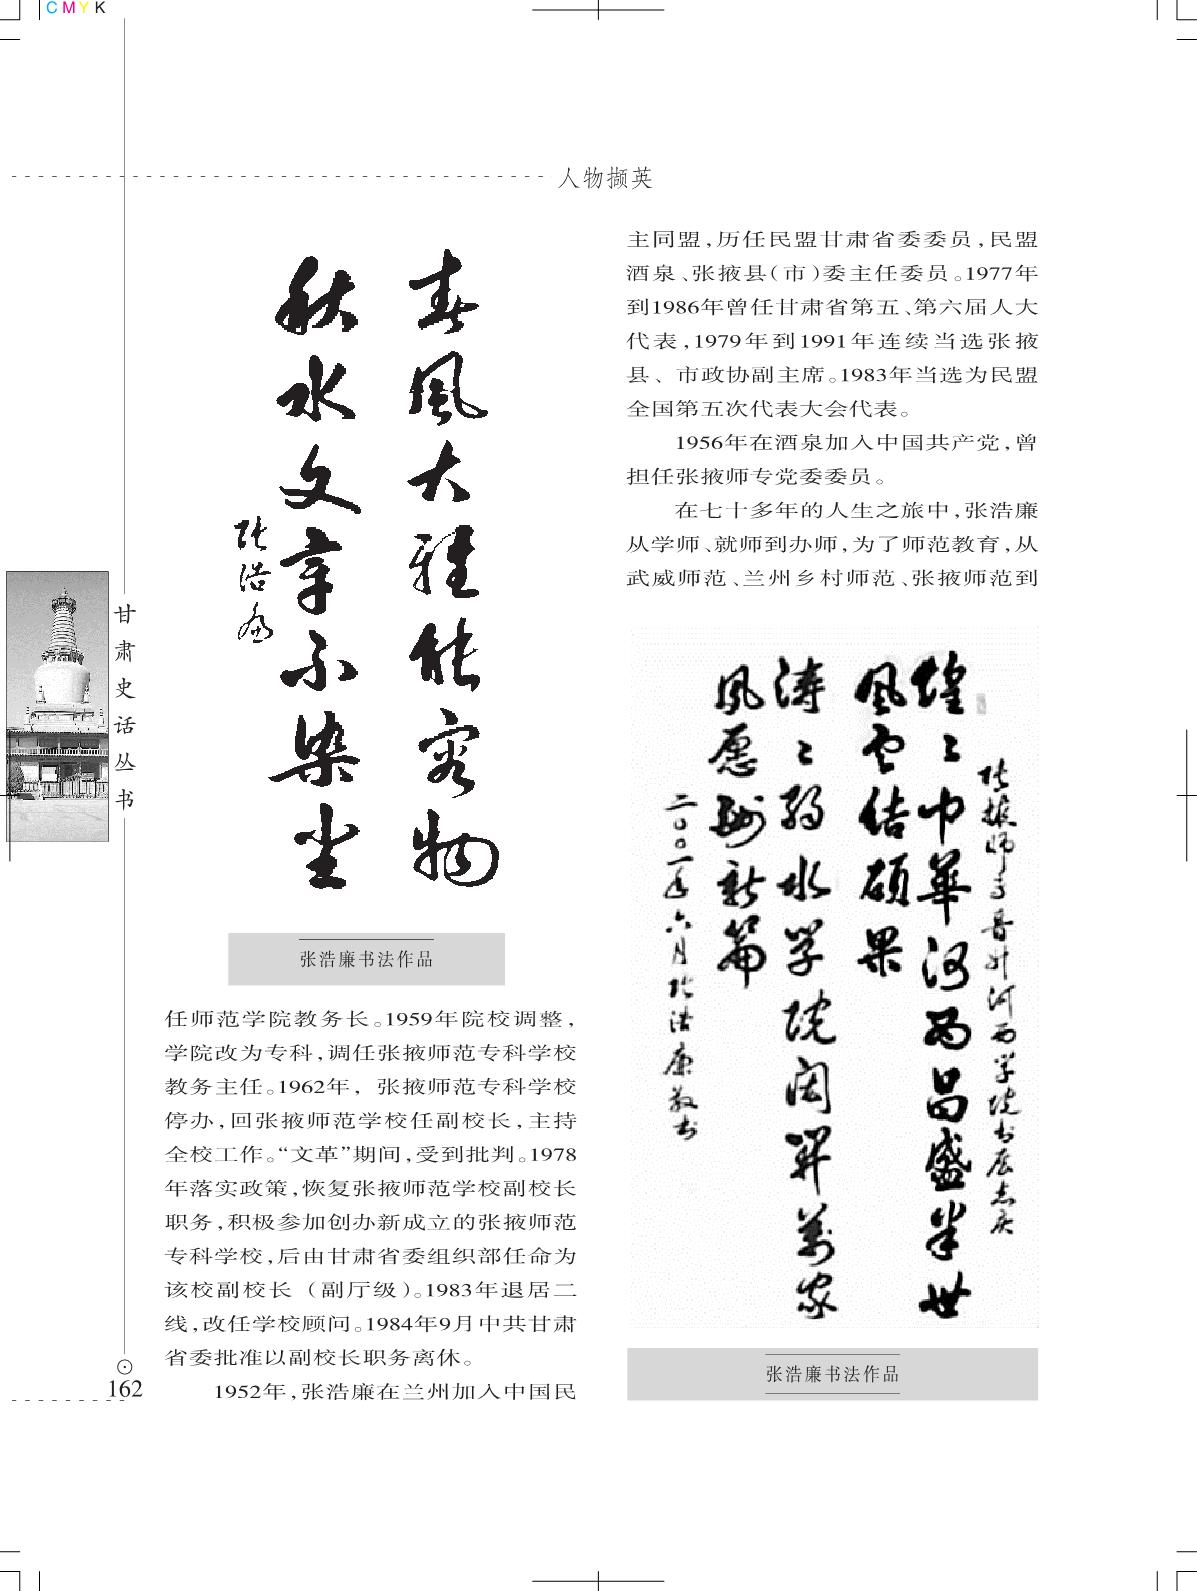 CMYK
人物撷英
春風大雅能容物
秋水文章不染尘
张浩廉
张浩廉书法作品
任师范学院教务长。1959年院校调整，
学院改为专科，调任张掖师范专科学校
教务主任。1962年，张掖师范专科学校
停办，回张掖师范学校任副校长，主持
全校工作。“文革”期间，受到批判。1978
年落实政策，恢复张掖师范学校副校长
职务，积极参加创办新成立的张掖师范
专科学校，后由甘肃省委组织部任命为
该校副校长（副厅级）。1983年退居二
线，改任学校顾问。1984年9月中共甘肃
省委批准以副校长职务离休。
1952年，张浩廉在兰州加入中国民
主同盟，历任民盟甘肃省委委员，民盟
酒泉、张掖县（市）委主任委员。1977年
到1986年曾任甘肃省第五、第六届人大
代表，1979年到1991年连续当选张掖
县、市政协副主席。1983年当选为民盟
全国第五次代表大会代表。
1956年在酒泉加入中国共产党，曾
担任张掖师专党委委员。
在七十多年的人生之旅中，张浩廉
从学师、就师到办师，为了师范教育，从
武威师范、兰州乡村师范、张掖师范到
张掖师专晋升河西学院书展志庆
煌々中華河西昌盛半世
风雲结硕果
涛々弱水学院闳开萬家
夙愿酬新篇
二〇〇一年六月张浩廉敬书
张浩廉书法作品
甘肃史话丛书
162